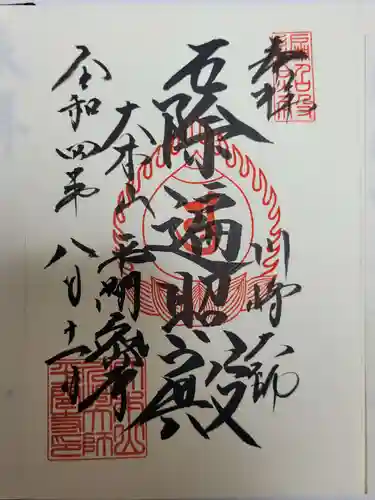 奉拝
川崎大師
厄除遍照殿
大本山 平間寺
令和四年八月十一日